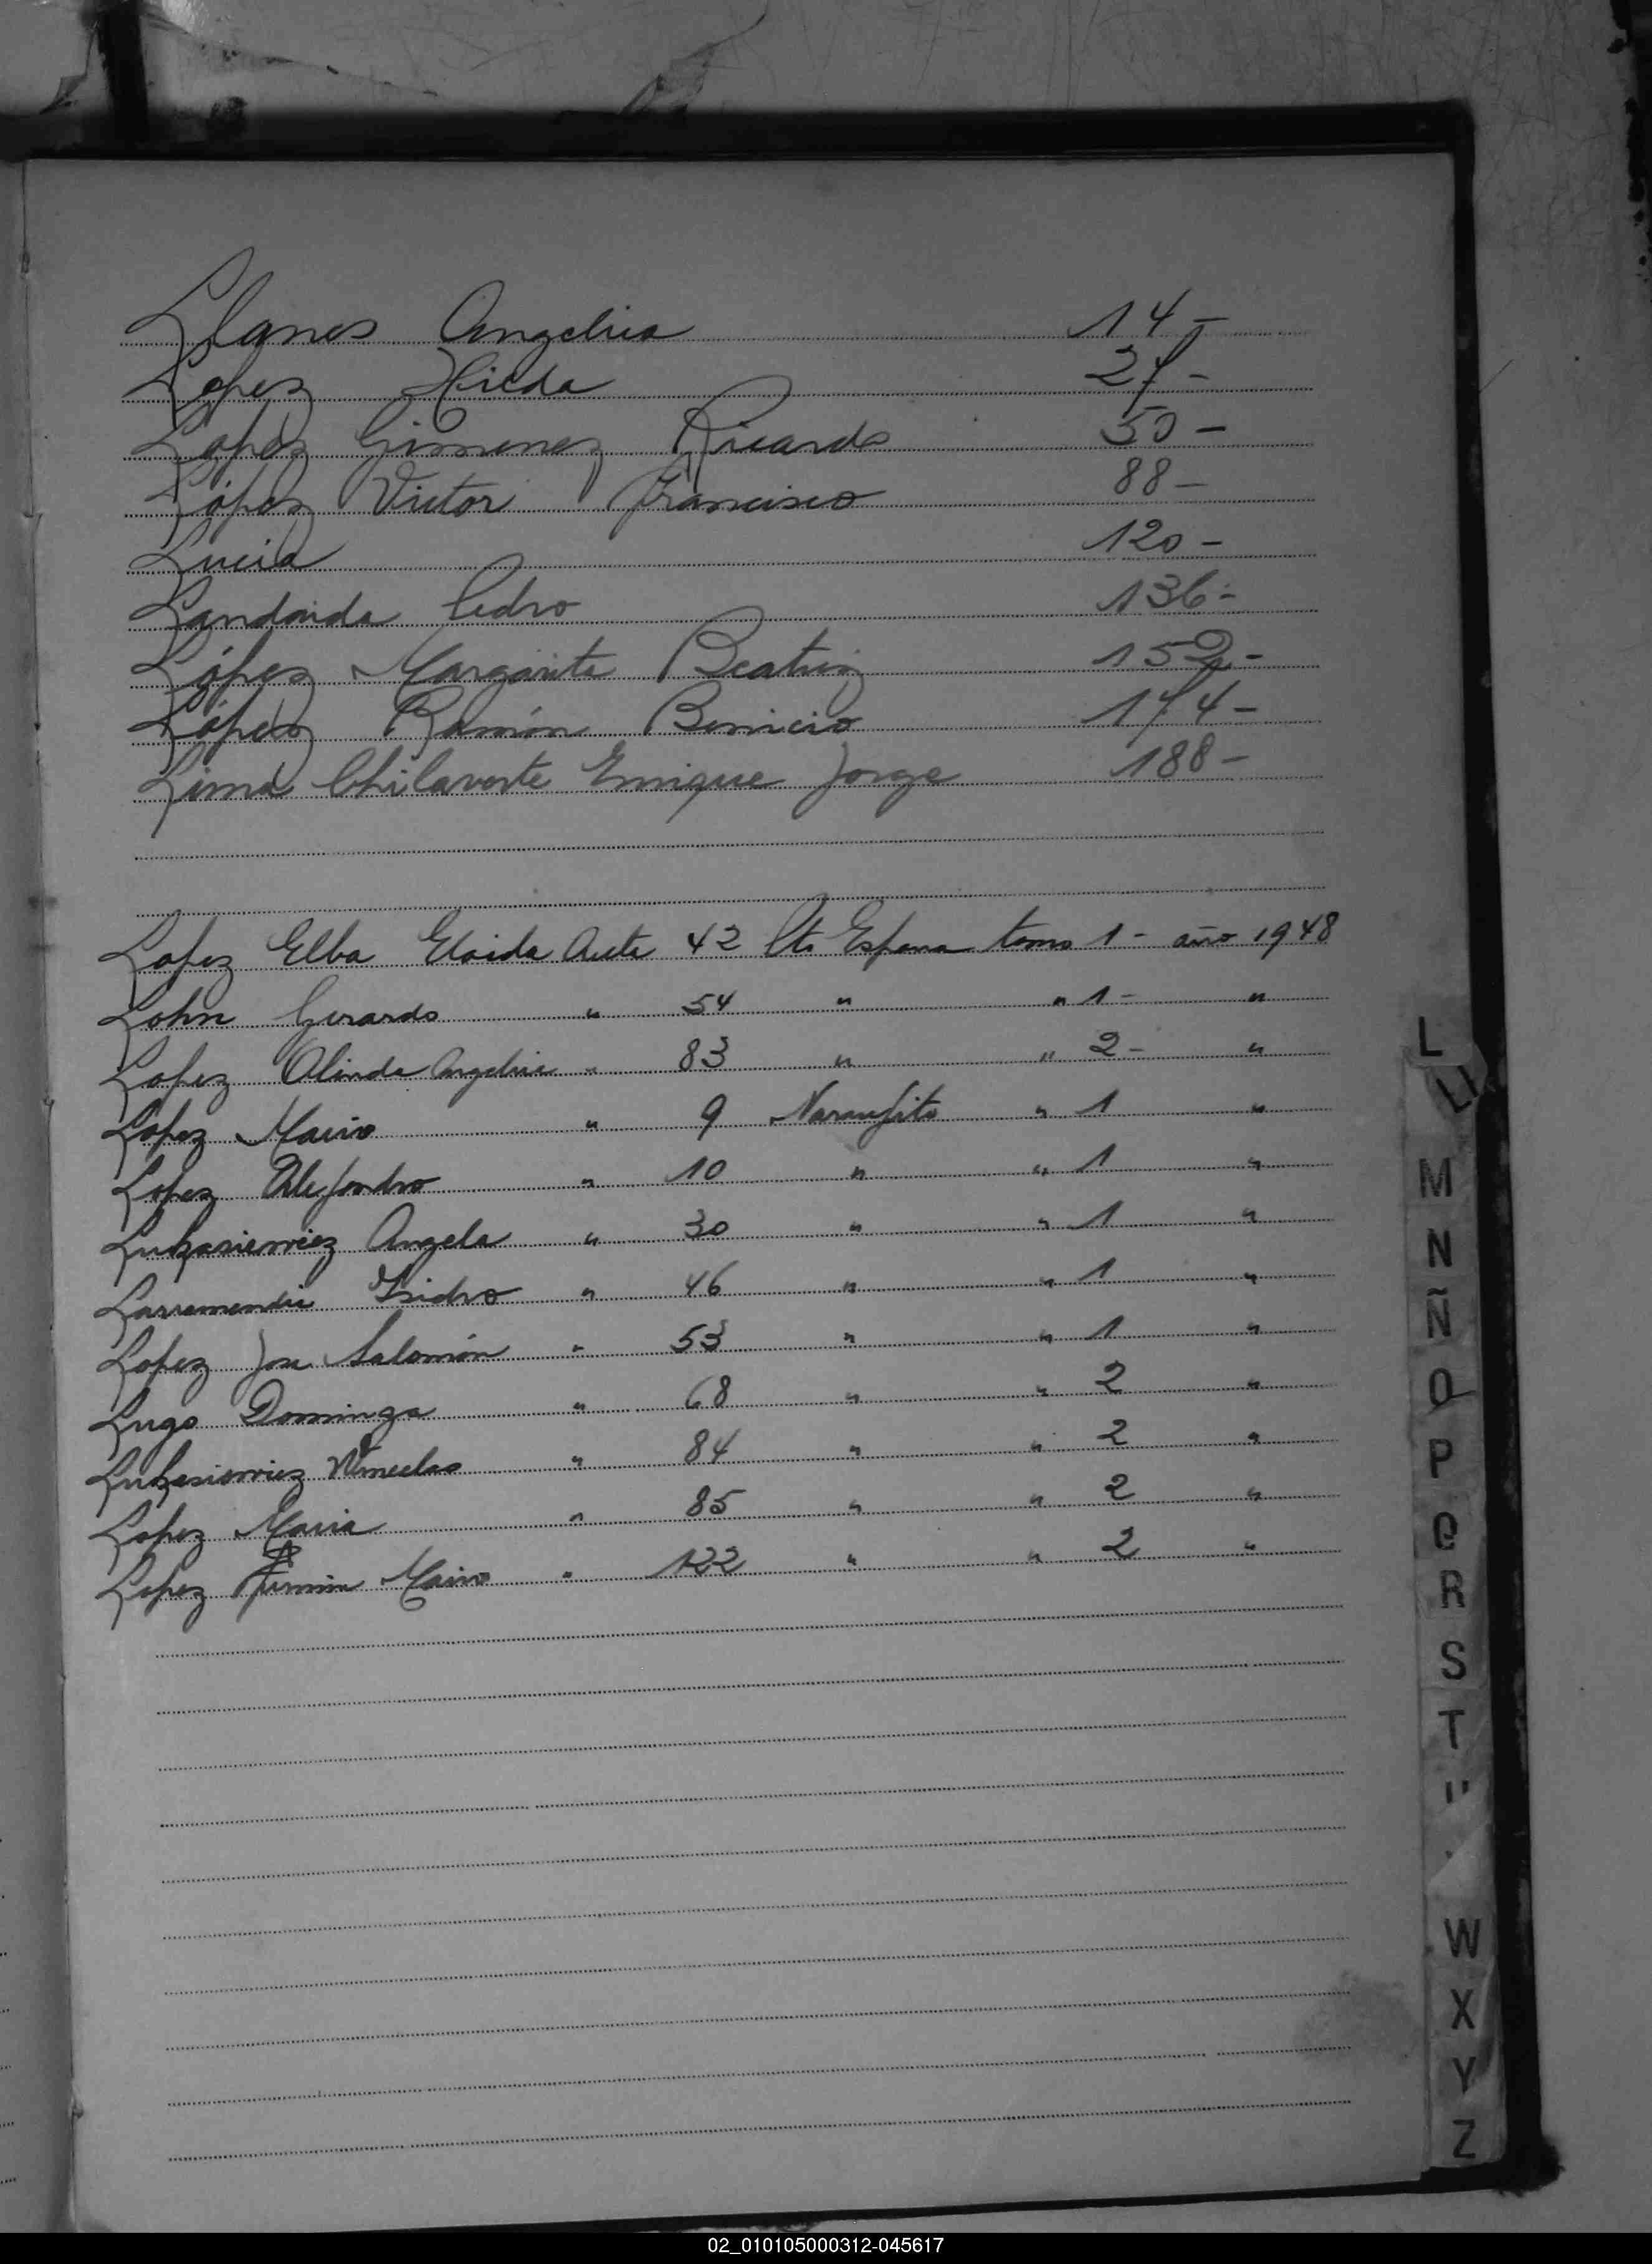 Llanes Angelica 14-
Lopez Hilda 27-
Lopez Gimenez Ricardo 50-
López Victor Francisco 88-
Lucia 120-
Landaida Pedro 136-
López Margarita Beatriz 152-
López Ramón Benicio 174-
Lima Chilaverte Enrique Jorge 188-
Lopez Elba Eloida Acta 42 Pto España tomo 1- año 1948
Lohn Gerardo " 54 " " 1- "
Lopez Olinda Angelica " 83 " " 2- "
Lopez Mario " 9 Naranjito " 1 "
Lopez Alejandro " 10 " " 1 "
Lukasiewiez Angela " 30 " " 1 "
Larramendi Isidro " 46 " " 1 "
Lopez Jose Salomón " 53 " " 1 "
Lugo Dominga " 68 " " 2 "
Lukasiewiez " 84 " " 2 "
Lopez Maria " 85 " " 2 "
Lopez Fermin Mario " 122 " " 2 "
L
Ll
M
N
Ñ
O
P
Q
R
S
T
W
X
Y
Z
02_010105000312-045617